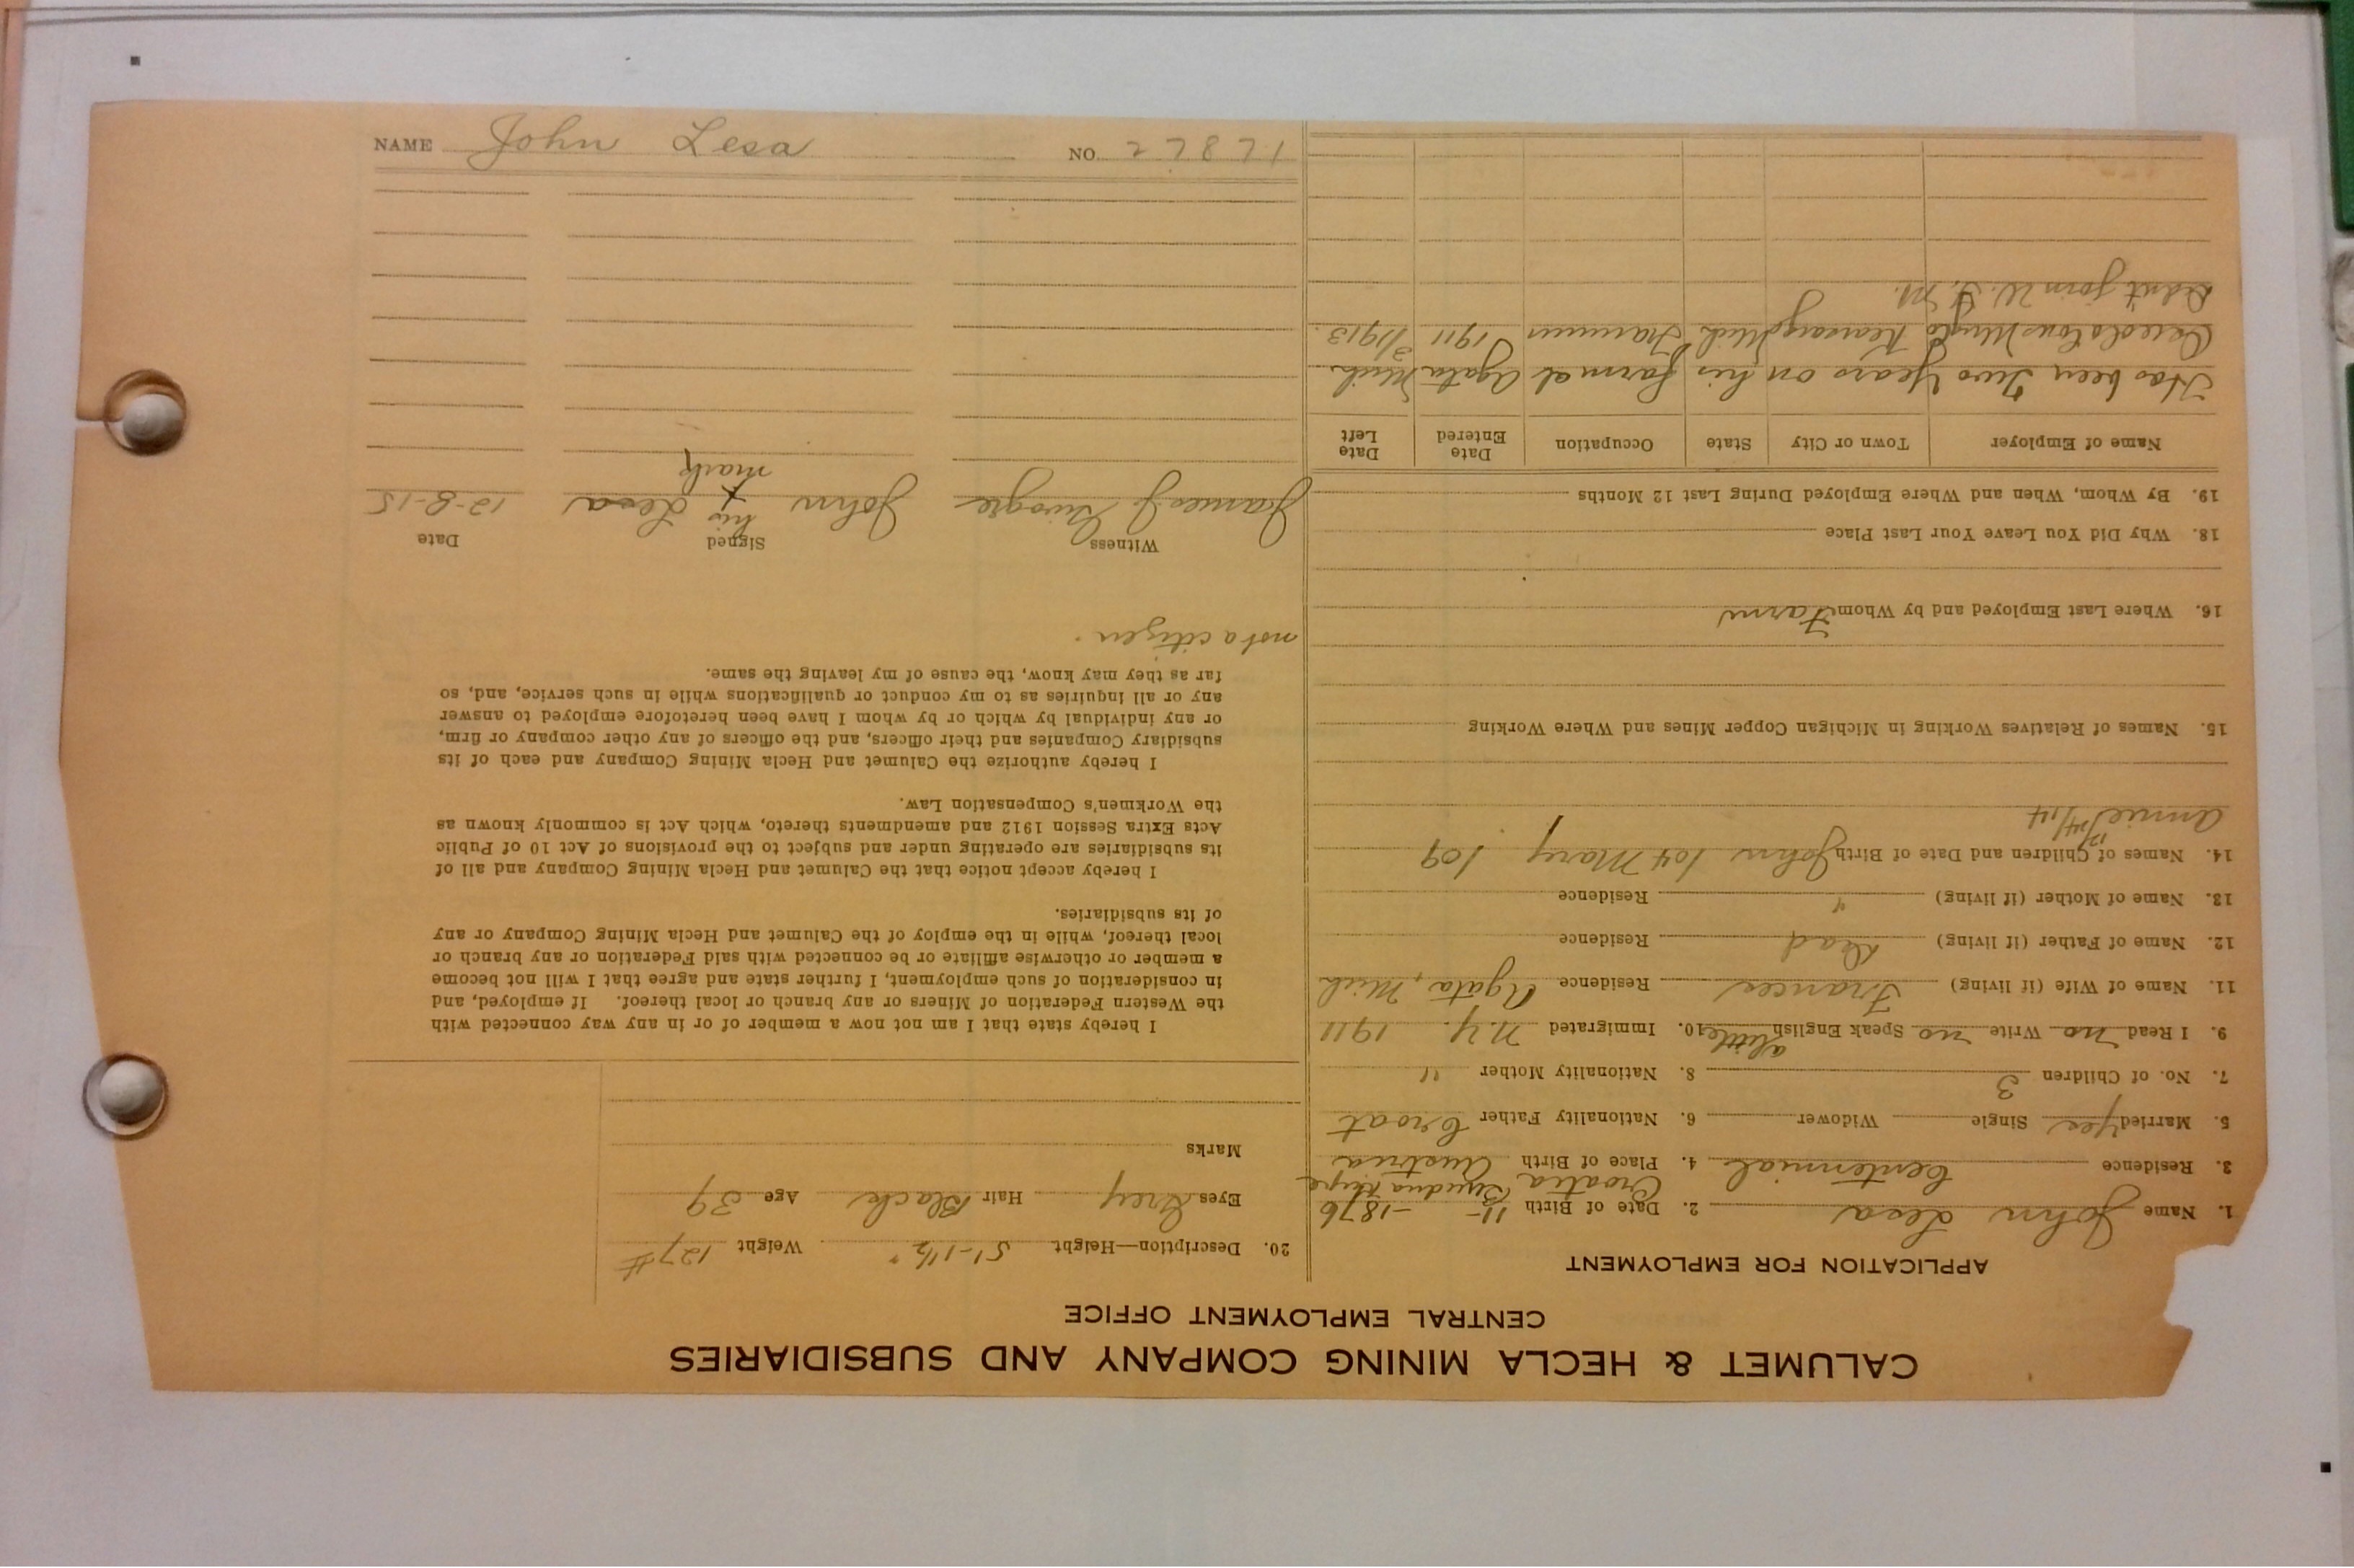 CALUMET & HECLA MINING COMPANY AND SUBSIDIARIES
CENTRAL EMPLOYMENT OFFICE
APPLICATION FOR EMPLOYMENT
1. Name John Lesa 2. Date of Birth 11- -1876
Croatia
3. Residence Centennial 4. Place of Birth Austria
5. Married yes Single Widower 6. Nationality Father Croat
7. No. of Children 3 8. Nationality Mother "
9. I Read no Write no Speak English a little 10. Immigrated N.Y. 1911
11. Name of Wife (if living) Frances Residence Agata, Mich
12. Name of Father (if living) Dead Residence
13. Name of Mother (if living) " Residence
14. Names of Children and Date of Birth John 104 Mary 109
Annie 12/14/14
15. Names of Relatives Working in Michigan Copper Mines and Where Working
16. Where Last Employed and by Whom Farm
18. Why Did You Leave Your Last Place
19. By Whom, When and Where Employed During Last 12 Months
Name of Employer Town or City State Occupation Date Entered Date Left
Has been Two Years on his farm at Agata Mich
Osceola Cons Mining Co Kearsarge Mich Trammer 1911 3/1913.
Didn't join W.F.M.
20. Description—Height 5'-1 1/2" Weight 127#
Eyes Grey Hair Black Age 39
Marks
I hereby state that I am not now a member of or in any way connected with
the Western Federation of Miners or any branch or local thereof. If employed, and
in consideration of such employment, I further state and agree that I will not become
a member or otherwise affiliate or be connected with said Federation or any branch or
local thereof, while in the employ of the Calumet and Hecla Mining Company or any
of its subsidiaries.
I hereby accept notice that the Calumet and Hecla Mining Company and all of
its subsidiaries are operating under and subject to the provisions of Act 10 of Public
Acts Extra Session 1912 and amendments thereto, which Act is commonly known as
the Workmen's Compensation Law.
I hereby authorize the Calumet and Hecla Mining Company and each of its
subsidiary Companies and their officers, and the officers of any other company or firm,
or any individual by which or by whom I have been heretofore employed to answer
any or all inquiries as to my conduct or qualifications while in such service, and, so
far as they may know, the cause of my leaving the same.
not a citizen.
Witness Signed Date
James J. John his x mark Lesa 12-8-15
NAME John Lesa NO. 27871